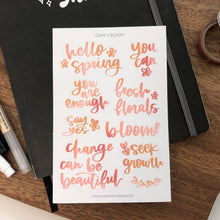 hello
spring
you
can
you
are
enough
fresh
florals
say
yes
bloom
change
can be
beautiful
seek
growth